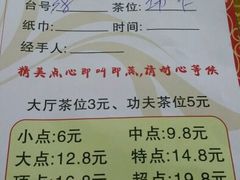 台号: 茶位:
纸巾: 时间:
经手人:
精美点心即叫即蒸,请耐心等候
大厅茶位3元、功夫茶位5元
小点:6元 中点:9.8元
大点:12.8元 特点:14.8元
顶点:16.8元 超点:19.8元